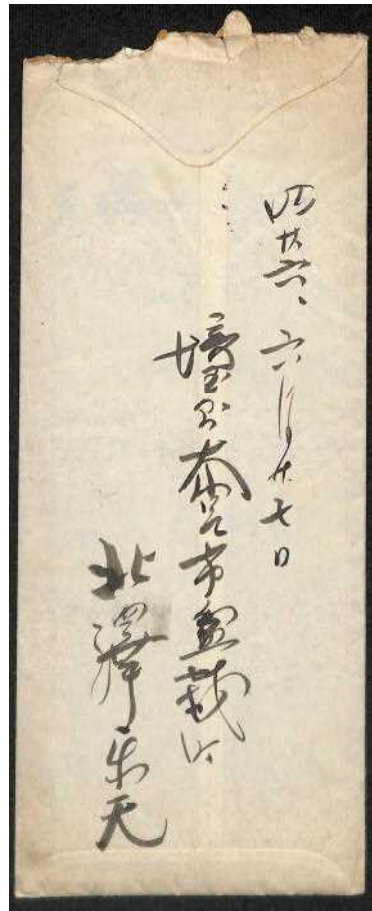 昭廿六、六月廿七日
埼玉县大宮市盆栽町
北澤楽天